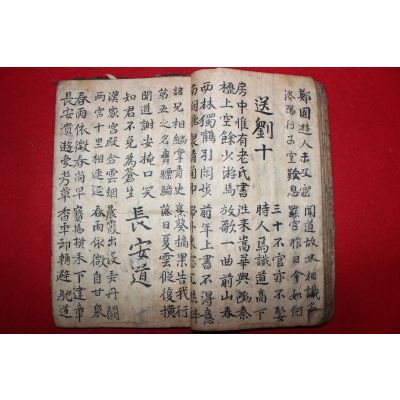 鄭國遊人未及家 聞道故林相識多
洛陽行子空歎息 罷官昨日今如何
送劉十
三十不官亦不娶
時人焉識道高下
房中惟有老氏書 往來嵩華與函秦
櫪上空餘少游馬 放歌一曲前山春
西林獨鶴引閑步 前年上書不得意
南澗飛泉清角巾 歸臥東窓兀然醉
諸兄相繼掌青史 烹葵摘果告我行
第五之名齊驃騎 落日夏雲縱復橫
聞道謝安掩口笑
知君不免為蒼生
長安道
漢家宮殿含雲烟 晨霞出沒弄丹闕
兩宮十里相連延 春雨依微自甘泉
春雨依微春尚早 寶馬橫來下建章
長安貴遊愛芳草 香車却轉避馳道